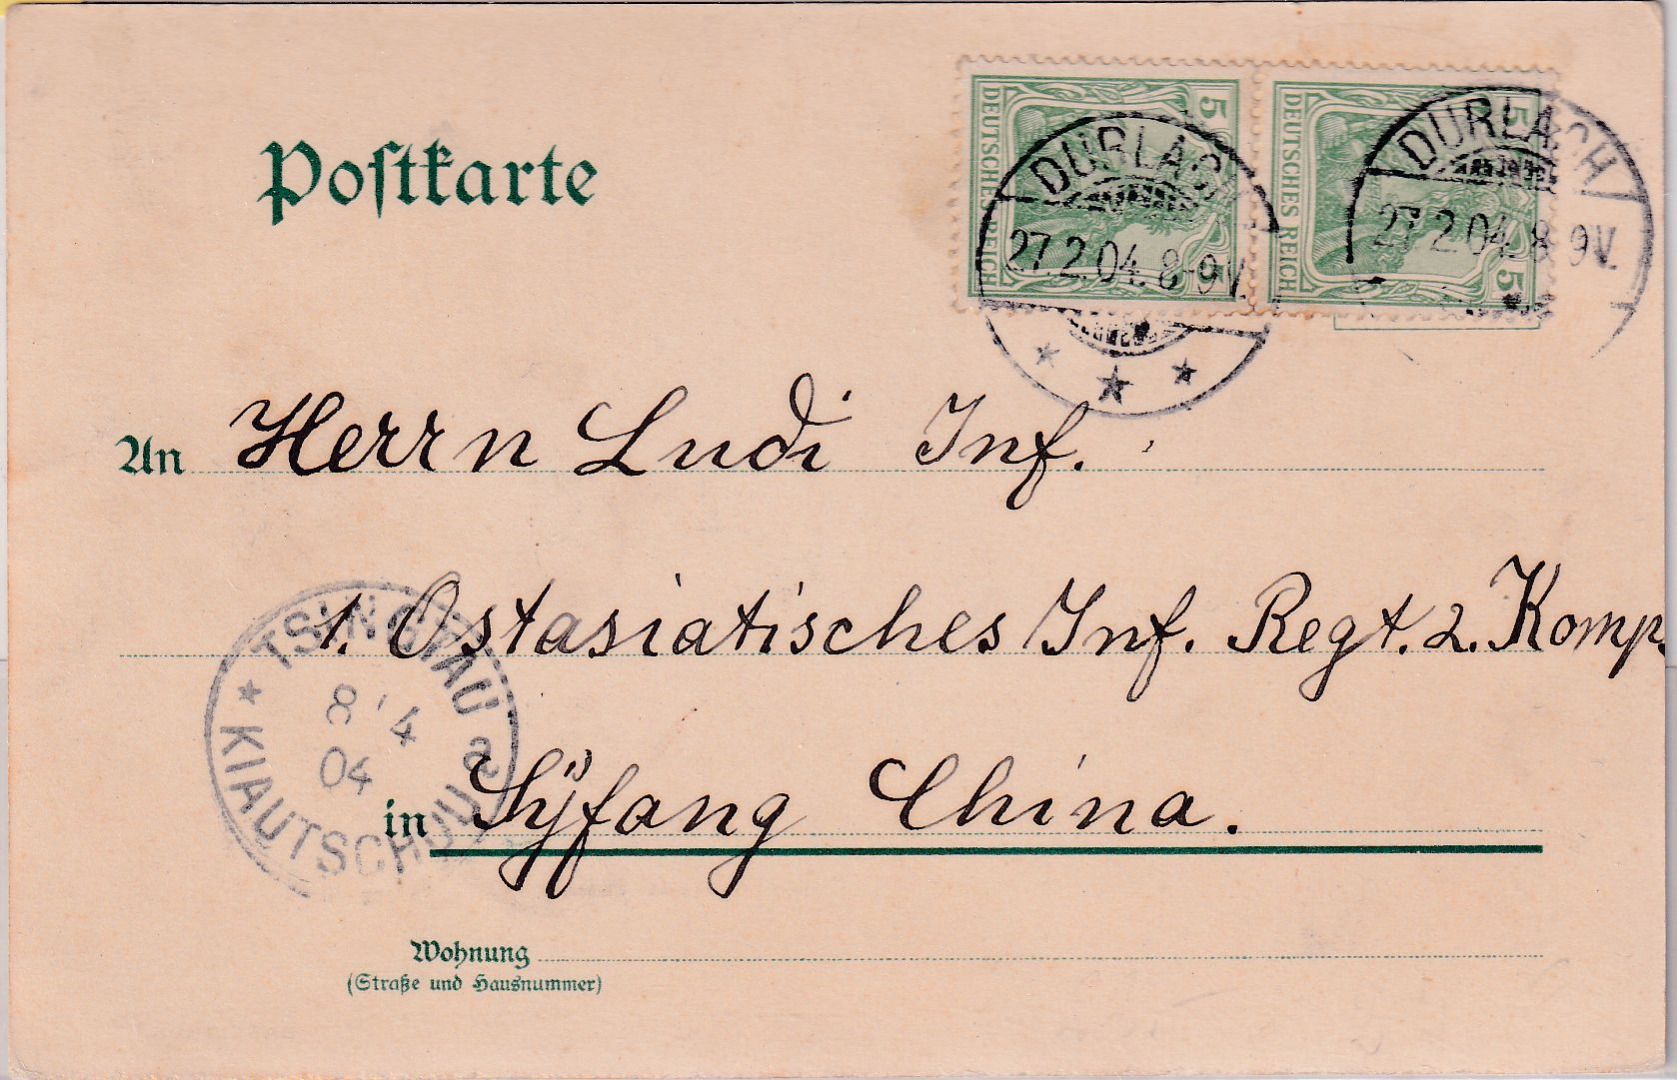 Postkarte
5 DEUTSCHES REICH 5
5 DEUTSCHES REICH 5
DURLACH
27.2.04. 8-9V.
DURLACH
27.2.04. 8-9V.
An Herrn Ludi Inf.
1. Ostasiatisches Inf. Regt. 2. Komp.
in Syfang China.
TSINGTAU a
8/4
04
KIAUTSCHOU
Wohnung
(Straße und Hausnummer)